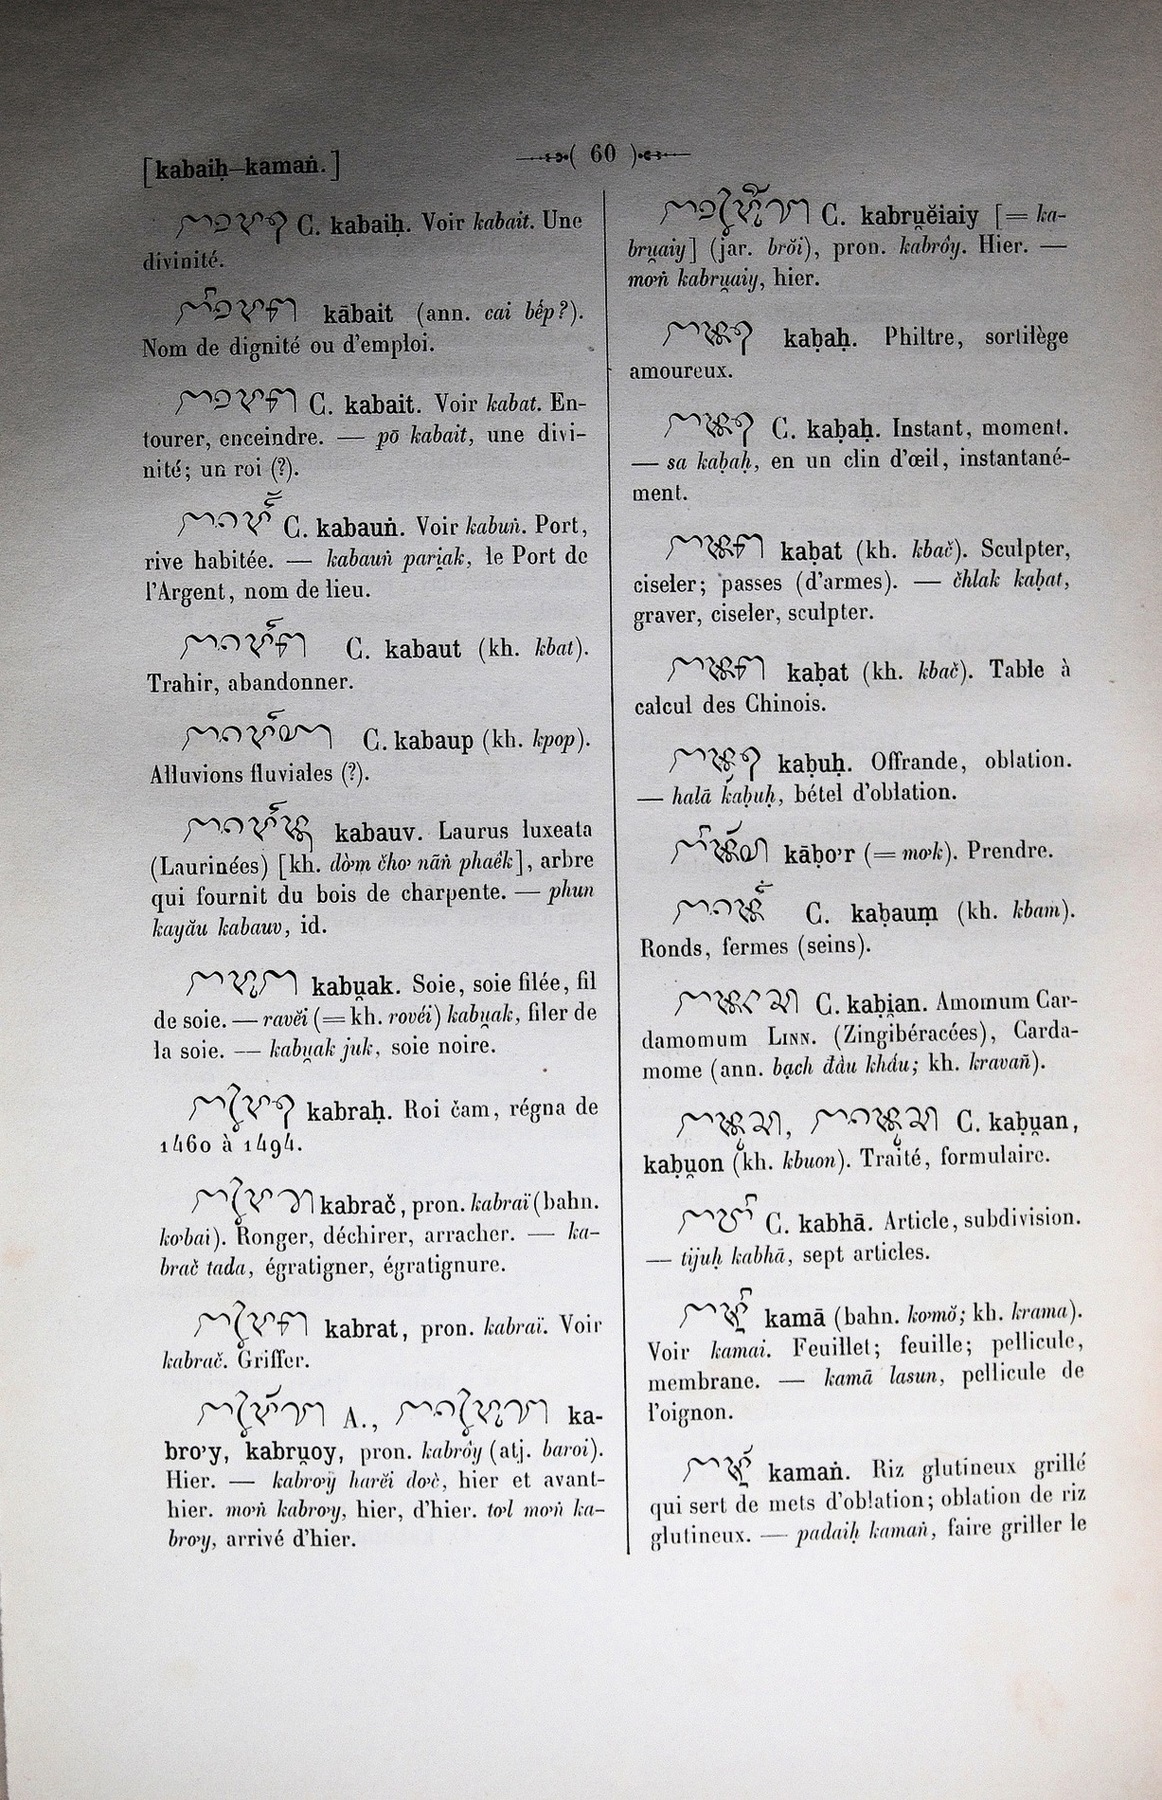 [kabaiḥ–kamaṅ.]
( 60 )
C. kabaiḥ. Voir kabait. Une
divinité.
kābait (ann. cai bếp?).
Nom de dignité ou d’emploi.
C. kabait. Voir kabat. En-
tourer, enceindre. — pō kabait, une divi-
nité; un roi (?).
C. kabauṅ. Voir kabuṅ. Port,
rive habitée. — kabauṅ pari̯ak, le Port de
l’Argent, nom de lieu.
C. kabaut (kh. kbat).
Trahir, abandonner.
C. kabaup (kh. kpop).
Alluvions fluviales (?).
kabauv. Laurus luxeata
(Laurinées) [kh. dỏ’m čho’ nāṅ phaêk], arbre
qui fournit du bois de charpente. — phun
kayău kabauv, id.
kabu̯ak. Soie, soie filée, fil
de soie. — ravĕi (= kh. rovéi) kabu̯ak, filer de
la soie. — kabu̯ak juk, soie noire.
kabraḥ. Roi čam, régna de
1460 à 1494.
kabrač, pron. kabraï (bahn.
ko’bai). Ronger, déchirer, arracher. — ka-
brač tada, égratigner, égratignure.
kabrat, pron. kabraï. Voir
kabrač. Griffer.
A., ka-
bro’y, kabru̯oy, pron. kabrơ̂y (atj. baroi).
Hier. — kabro’y harĕi do’č, hier et avant-
hier. mo’ṅ kabro’y, hier, d’hier. to’l mo’ṅ ka-
bro’y, arrivé d’hier.
C. kabru̯ĕiaiy [= ka-
bru̯aiy] (jar. brŏi), pron. kabrơ̂y. Hier. —
mo’ṅ kabru̯aiy, hier.
kaḅaḥ. Philtre, sortilège
amoureux.
C. kaḅaḥ. Instant, moment.
— sa kaḅaḥ, en un clin d’œil, instantané-
ment.
kaḅat (kh. kbač). Sculpter,
ciseler; passes (d’armes). — čhlak kaḅat,
graver, ciseler, sculpter.
kaḅat (kh. kbač). Table à
calcul des Chinois.
kaḅuḥ. Offrande, oblation.
— halā kaḅuḥ, bétel d’oblation.
kāḅo’r (= mo’k). Prendre.
C. kaḅauṃ (kh. kbaṁ).
Ronds, fermes (seins).
C. kaḅi̯an. Amomum Car-
damomum LINN. (Zingibéracées), Carda-
mome (ann. bạch đậu khấu; kh. kravañ).
C. kaḅu̯an,
kaḅu̯on (kh. kbuon). Traité, formulaire.
C. kabhā. Article, subdivision.
— tijuḥ kabhā, sept articles.
kamā (bahn. ko’mŏ; kh. krama).
Voir kamai. Feuillet; feuille; pellicule,
membrane. — kamā lasun, pellicule de
l’oignon.
kamaṅ. Riz glutineux grillé
qui sert de mets d’oblation; oblation de riz
glutineux. — padaiḥ kamaṅ, faire griller le